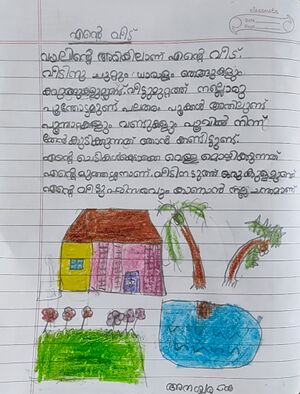 classmate
Date
Page
എന്റെ വീട്
വയലിന്റെ അരികിലാണ് എന്റെ വീട്.
വീടിനു ചുറ്റും ധാരാളം തെങ്ങുകളും
വീട്ടുമുറ്റത്ത് നല്ലൊരു
പൂന്തോട്ടമുണ്ട് പലതരം പൂക്കൾ അതിലുണ്ട്
പൂമ്പാറ്റകളും വണ്ടുകളും പൂവിൽ നിന്ന്
തേൻ കുടിക്കുന്നത് ഞാൻ കണ്ടിട്ടുണ്ട്.
എന്റെ ചെടികൾക്കെല്ലാം വെള്ളമൊഴിക്കുന്നത്
എന്റെ മുത്തശ്ശനാണ്. വീടിനടുത്ത് ഒരു കുളമുണ്ട്
എന്റെ വീടും പരിസരവും കാണാൻ നല്ല ചന്തമാണ്